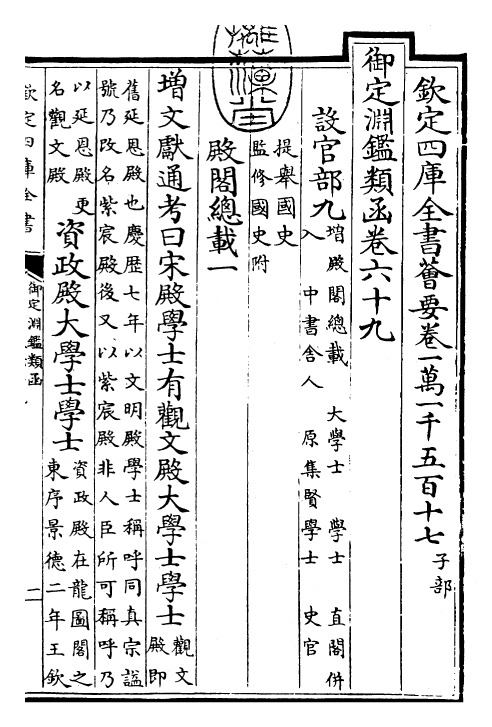 欽定四庫全書薈要卷一萬一千五百十七子部
御定淵鑑類函卷六十九
設官部九增殿閣總載 大學士 學士 直閣併
入 中書舍人 原集賢學士 史官
提舉國史
監修國史附
殿閣總載一
增文獻通考曰宋殿學士有觀文殿大學士學士觀文
殿即
舊延恩殿也慶歷七年以文明殿學士稱呼同真宗諡
號乃改名紫宸殿後又以紫宸殿非人臣所可稱呼乃
以延恩殿更
名觀文殿
資政殿大學士學士資政殿在龍圖閣之
東序景德二年王欽
欽定四庫全書
御定淵鑑類函